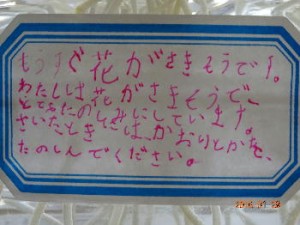 もうすぐ花がさきそうです。
わたしは花がさきそうで、
とてもたのしみにしています。
さいたときはかおりとかを、
たのしんでください。